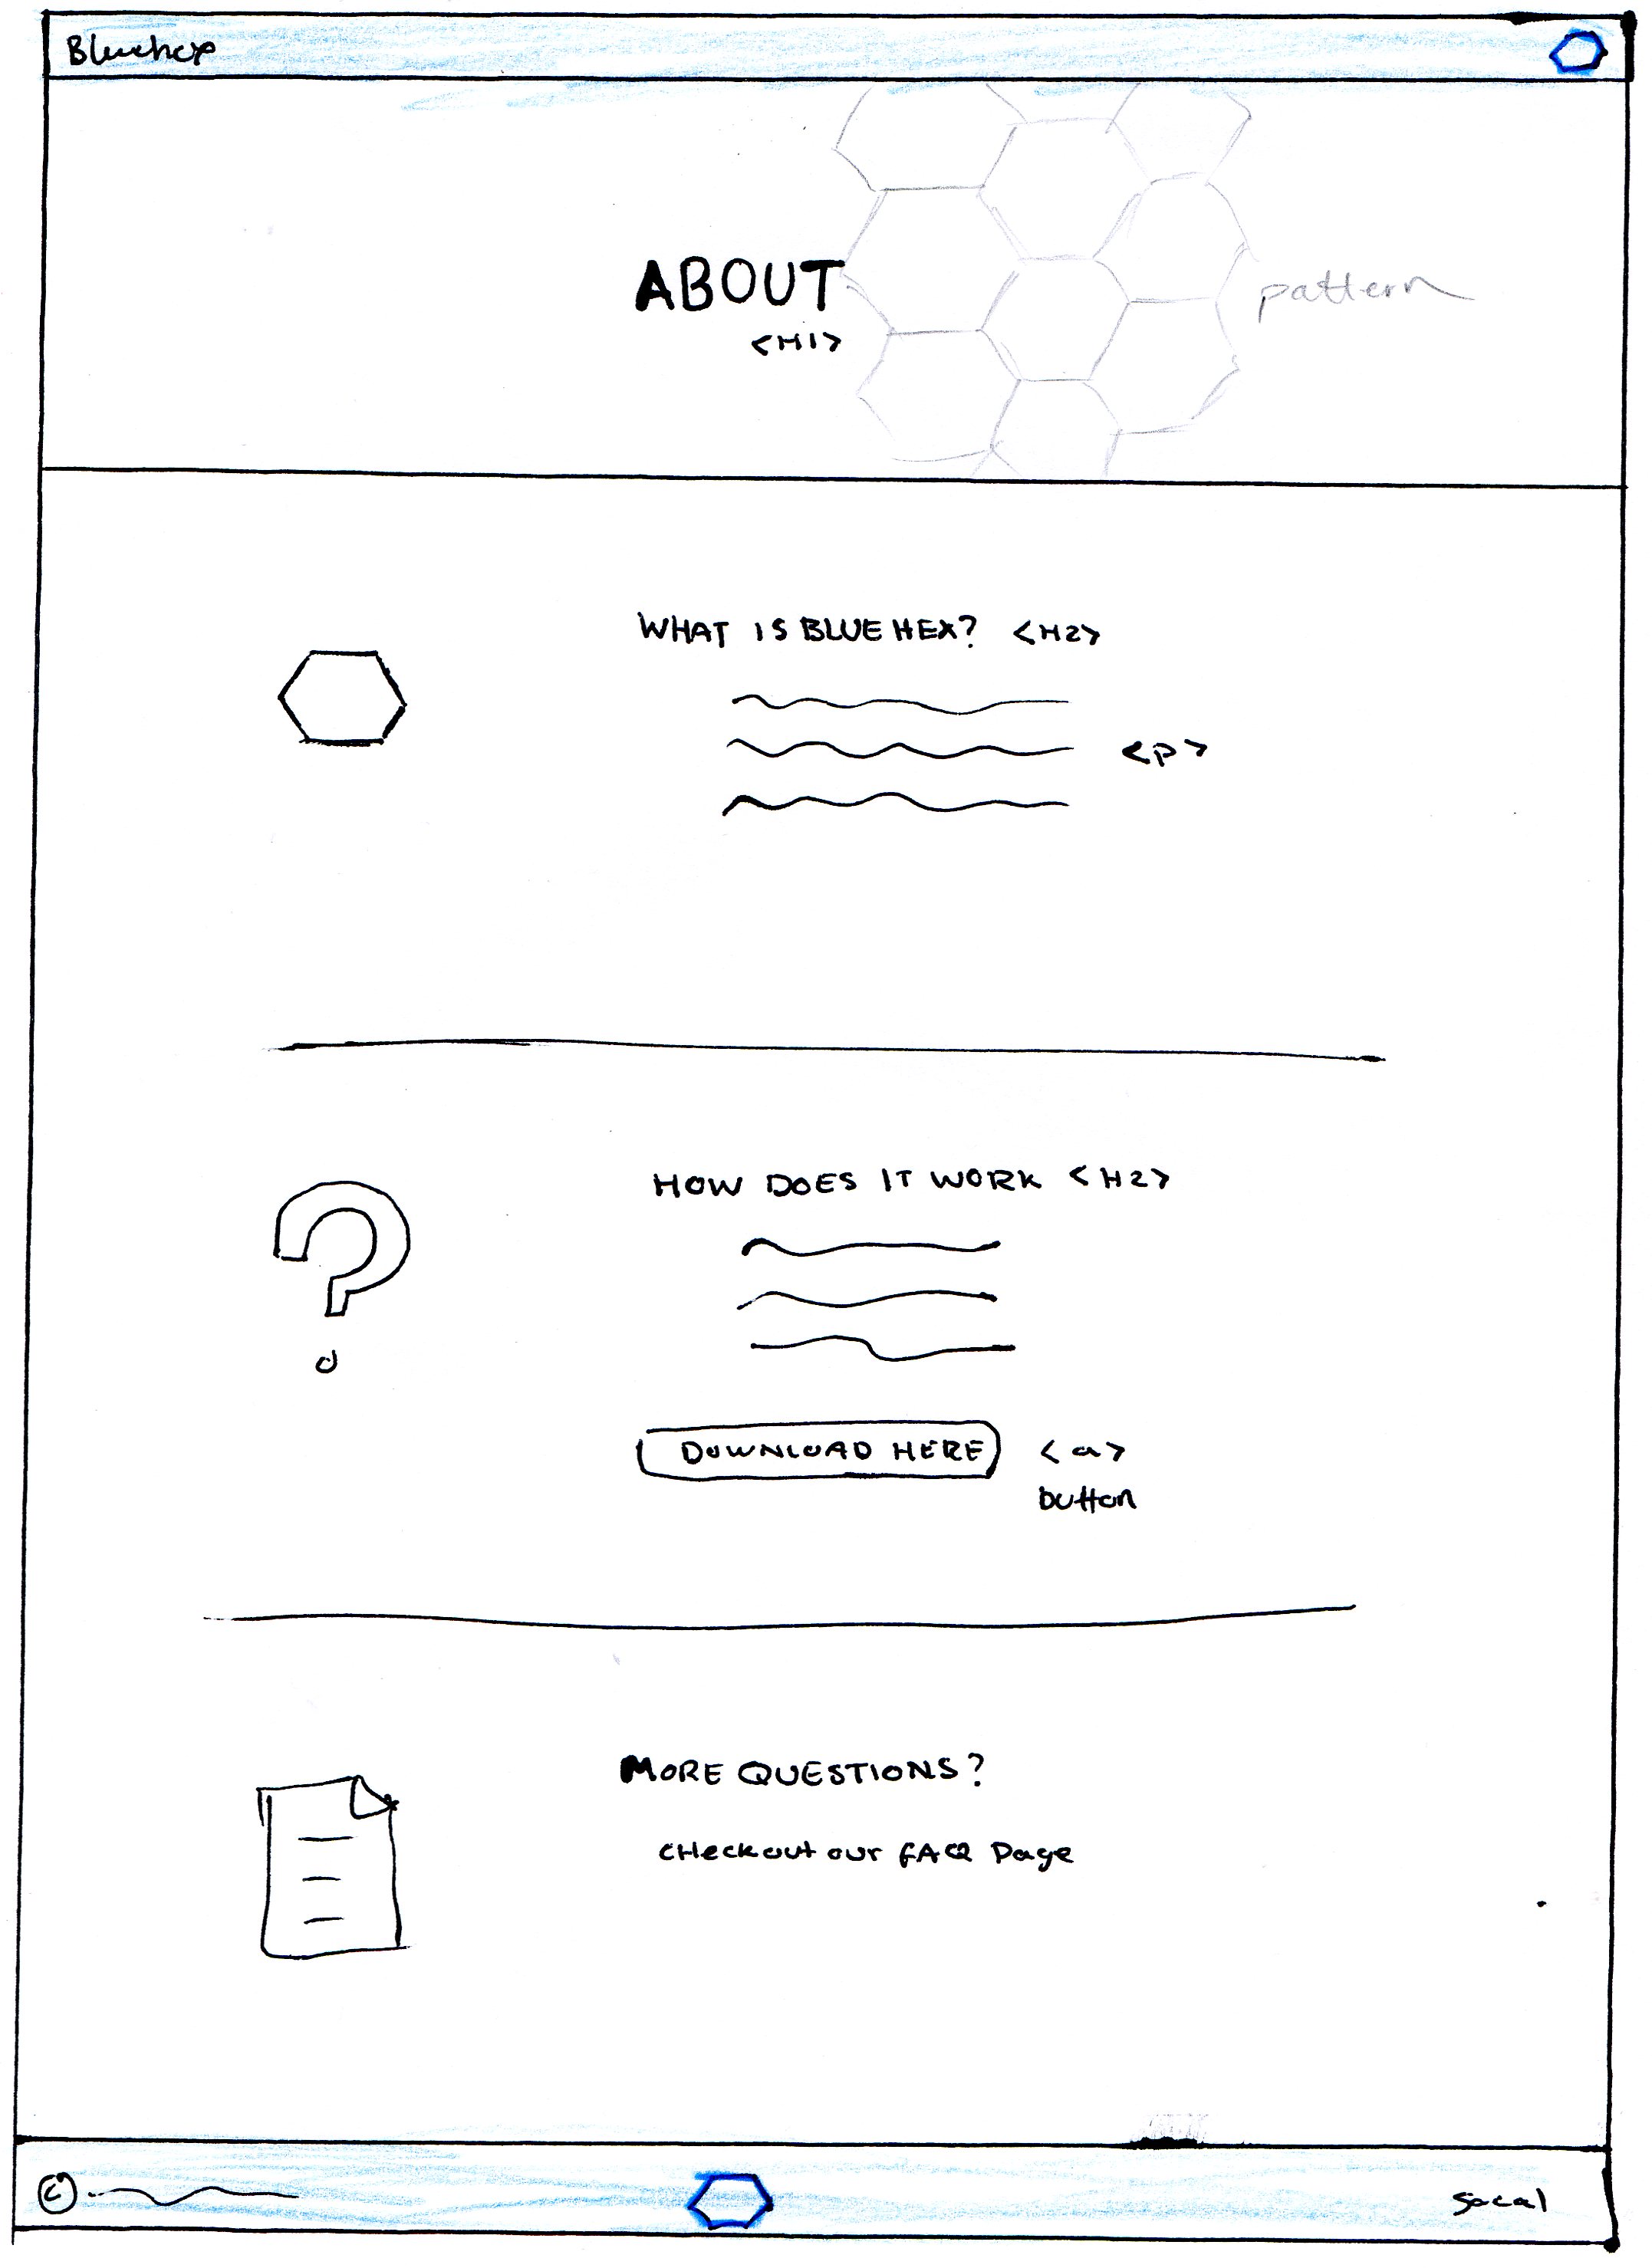 Bluehex
ABOUT
<H1>
pattern
WHAT IS BLUE HEX? <H2>
<p>
HOW DOES IT WORK <H2>
DOWNLOAD HERE <a>
button
MORE QUESTIONS?
CHeckout our FAQ Page
© Socal